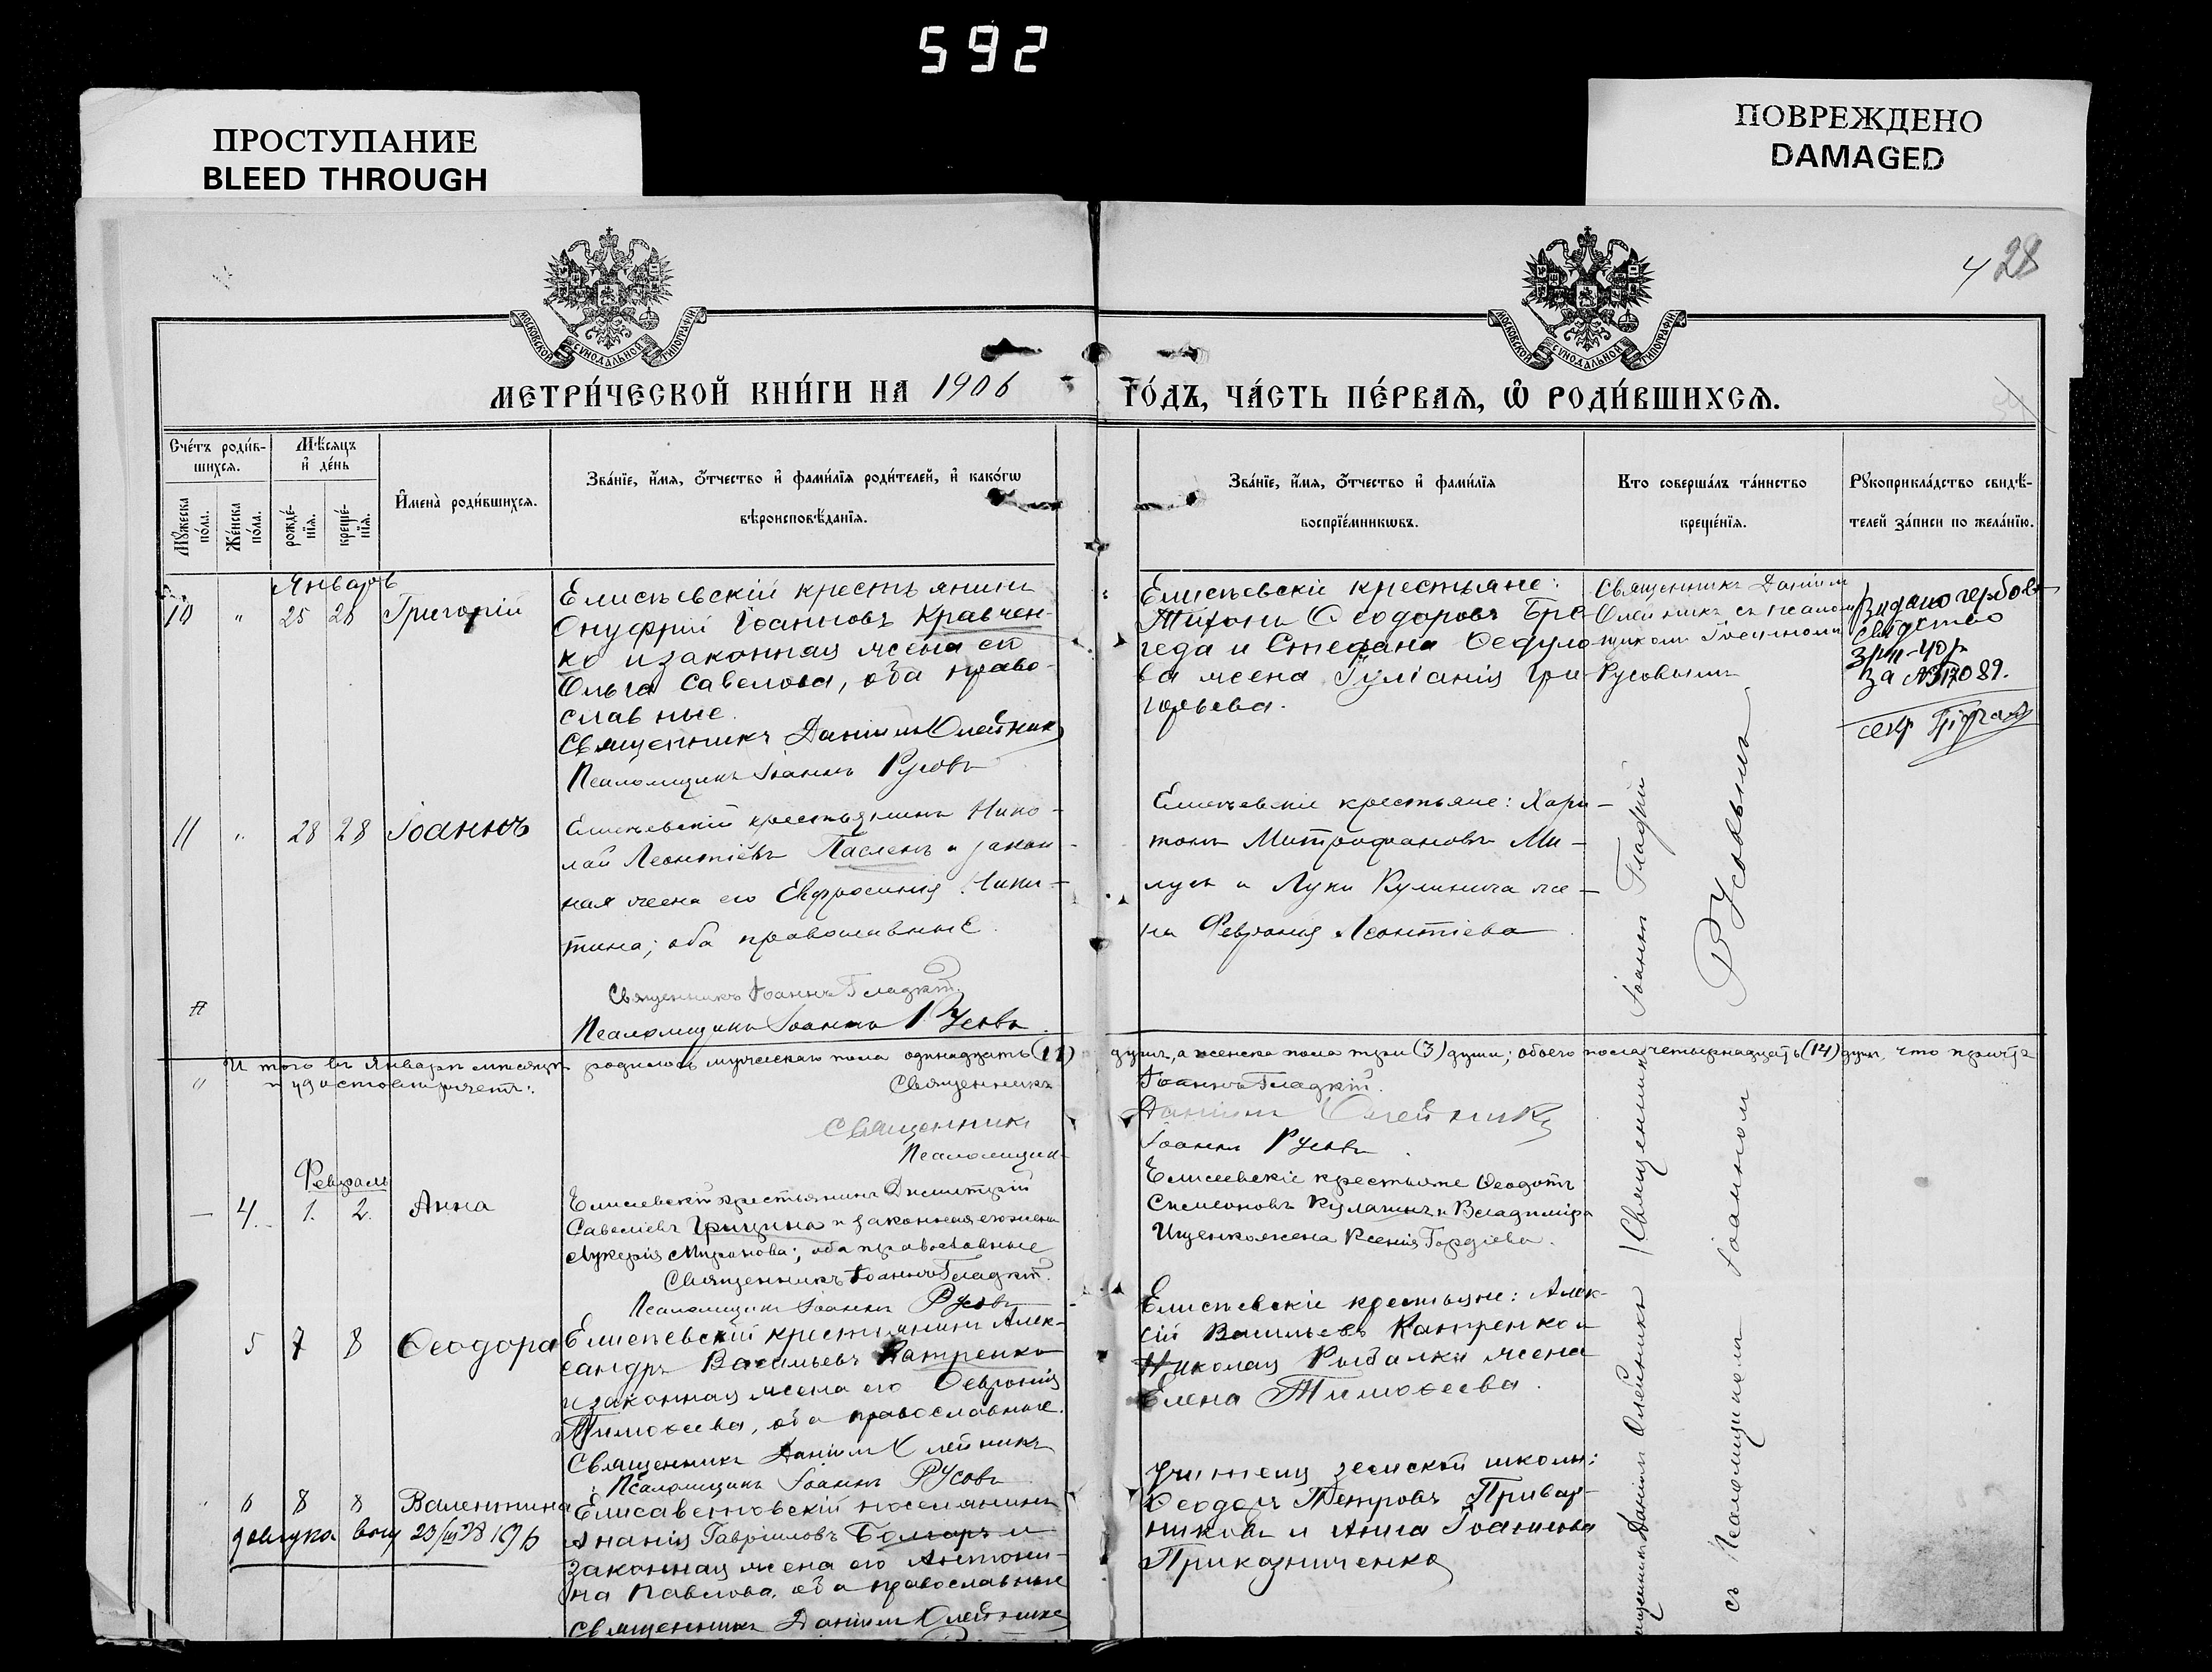 592
ПРОСТУПАНИЕ
BLEED THROUGH
ПОВРЕЖДЕНО
DAMAGED
4 28
МОСКОВСКОЙ СѴНОДАЛЬНОЙ ТИПОГРАФІИ
МОСКОВСКОЙ СѴНОДАЛЬНОЙ ТИПОГРАФІИ
МЕТРИ́ЧЕСКОЙ КНИ́ГИ НА 1906 ГО́ДЪ, ЧА́СТЬ ПЕ́РВАѦ, Ѡ҆ РОДИ́ВШИХСѦ.
Сче́тъ роди́в-
шихсѧ.
Мѣ́сѧцъ
и҆ де́нь
Мꙋ́жеска по́ла.
Же́нска по́ла.
рожде́-
нїѧ.
креще́-
нїѧ.
И҆мена̀ роди́вшихсѧ.
Зва́нїе, и҆́мѧ, ѻ҆́тчество и҆ фами́лїѧ роди́телей, и҆ како́гѡ
вѣроисповѣ́данїѧ.
Зва́нїе, и҆́мѧ, ѻ҆́тчество и҆ фами́лїѧ
воспрїе́мникѡвъ.
Кто соверша́лъ та́инство
креще́нїѧ.
Рꙋкоприкла́дство свидѣ́-
телей за́писи по жела́нїю.
Январь
10 " 25 28 Григорій
Елисѣевскій крестьянинъ
Онуфрій Іоанновъ Кравчен-
ко и законная жена его
Ольга Савелова, оба право-
славные.
Священникъ Даніилъ Олейникъ
Псаломщикъ Іоаннъ Русовъ
Елисѣевскіе крестьяне:
Тихонъ Ѳеодоровъ Бре-
геда и Стефана Ѳедуло-
ва жена Іуліанія Гри-
горьева.
Священникъ Даніилъ
Олейникъ съ псалом-
щикомъ Іоанномъ
Русовымъ
Видано гербов
свідоство
за №
секр
11 " 28 28 Іоаннъ
Елисѣевскій крестьянинъ Нико-
лай Леонтіевъ Паслень и закон-
ная жена его Евфросинія Ники-
тина; оба православные.
Священникъ Іоаннъ Гладкій.
Псаломщикъ Іоаннъ Русовъ.
Елисѣевскіе крестьяне: Хари-
тонъ Митрофановъ Ми-
лусь и Луки Кулинича же-
на Февронія Леонтіева.
Итого въ Январѣ мѣсяцѣ родилось мужескаго пола одинадцать (11) душъ, а женска пола три (3) души; обоего пола четырнадцать (14) душъ, что причтъ
и удостовѣряетъ:
Священникъ Іоаннъ Гладкій.
Священникъ Даніилъ Олейникъ
Псаломщикъ Іоаннъ Русовъ.
Февраль
— 4. 1. 2. Анна
Елисеевскій крестьянинъ Димитрій
Савеліевъ Грицина и законная его жена
Лукерія Миронова; оба православные
Священникъ Іоаннъ Гладкій.
Псаломщикъ Іоаннъ Русовъ
Елисеевскіе крестьяне Ѳеодотъ
Симеоновъ Кулагинъ и Владиміра
Ищенко жена Ксенія Гордіева.
5 7 8 Ѳеодора
Елисѣевскій крестьянинъ Алек-
сандръ Васильевъ Катренко
и законная жена его Ѳевронія
Тимоѳеева, оба православные.
Священникъ Даніилъ Олейникъ
Псаломщикъ Іоаннъ Русовъ
Елисѣевскіе крестьяне: Алек-
сій Васильевъ Катренко и
Николая Рыбалки жена
Елена Тимоѳеева.
6 8 8 Валентина
Елисаветовскій поселянинъ
Ананія Гавріиловъ Болгаръ и
законная жена его Антони-
на Павлова, оба православные
Священникъ Даніилъ Олейникъ
учитель земской школы:
Ѳеодоръ Петровъ Привар-
никовъ и Анна Іоаннова
Приказниченко
Священникъ Іоаннъ Гладкій
Священникъ Даніилъ Олейникъ
съ Псаломщикомъ Іоанномъ Русовымъ